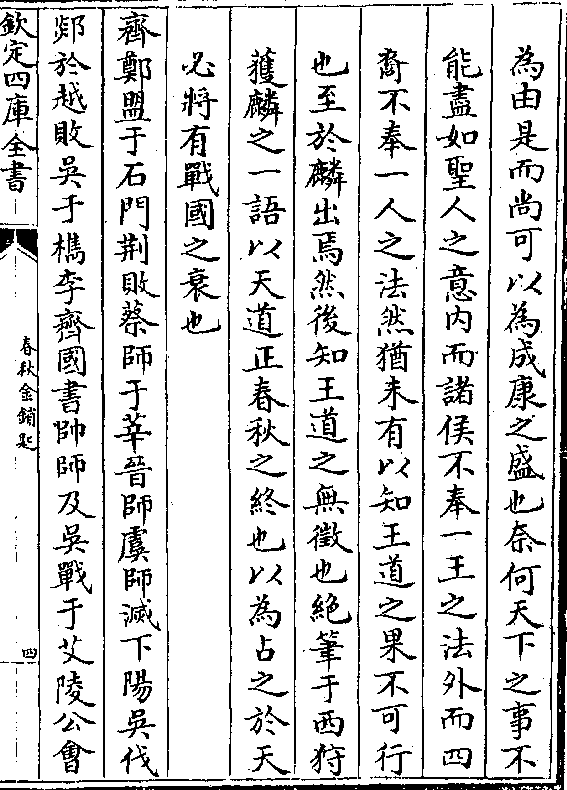 為由是而尚可以為成康之盛也奈何天下之事不
能盡如聖人之意内而諸侯不奉一王之法外而四
裔不奉一人之法然猶未有以知王道之果不可行
也至於麟出焉然後知王道之無徵也絶筆于西狩
獲麟之一語以天道正春秋之終也以為占之於天
必將有戰國之衰也
齊鄭盟于石門荆敗蔡師于莘晉師虞師滅下陽吳伐
郯於越敗吳于檇李齊國書帥師及吳戰于艾陵公會
欽定四庫全書
春秋金鎖匙
四